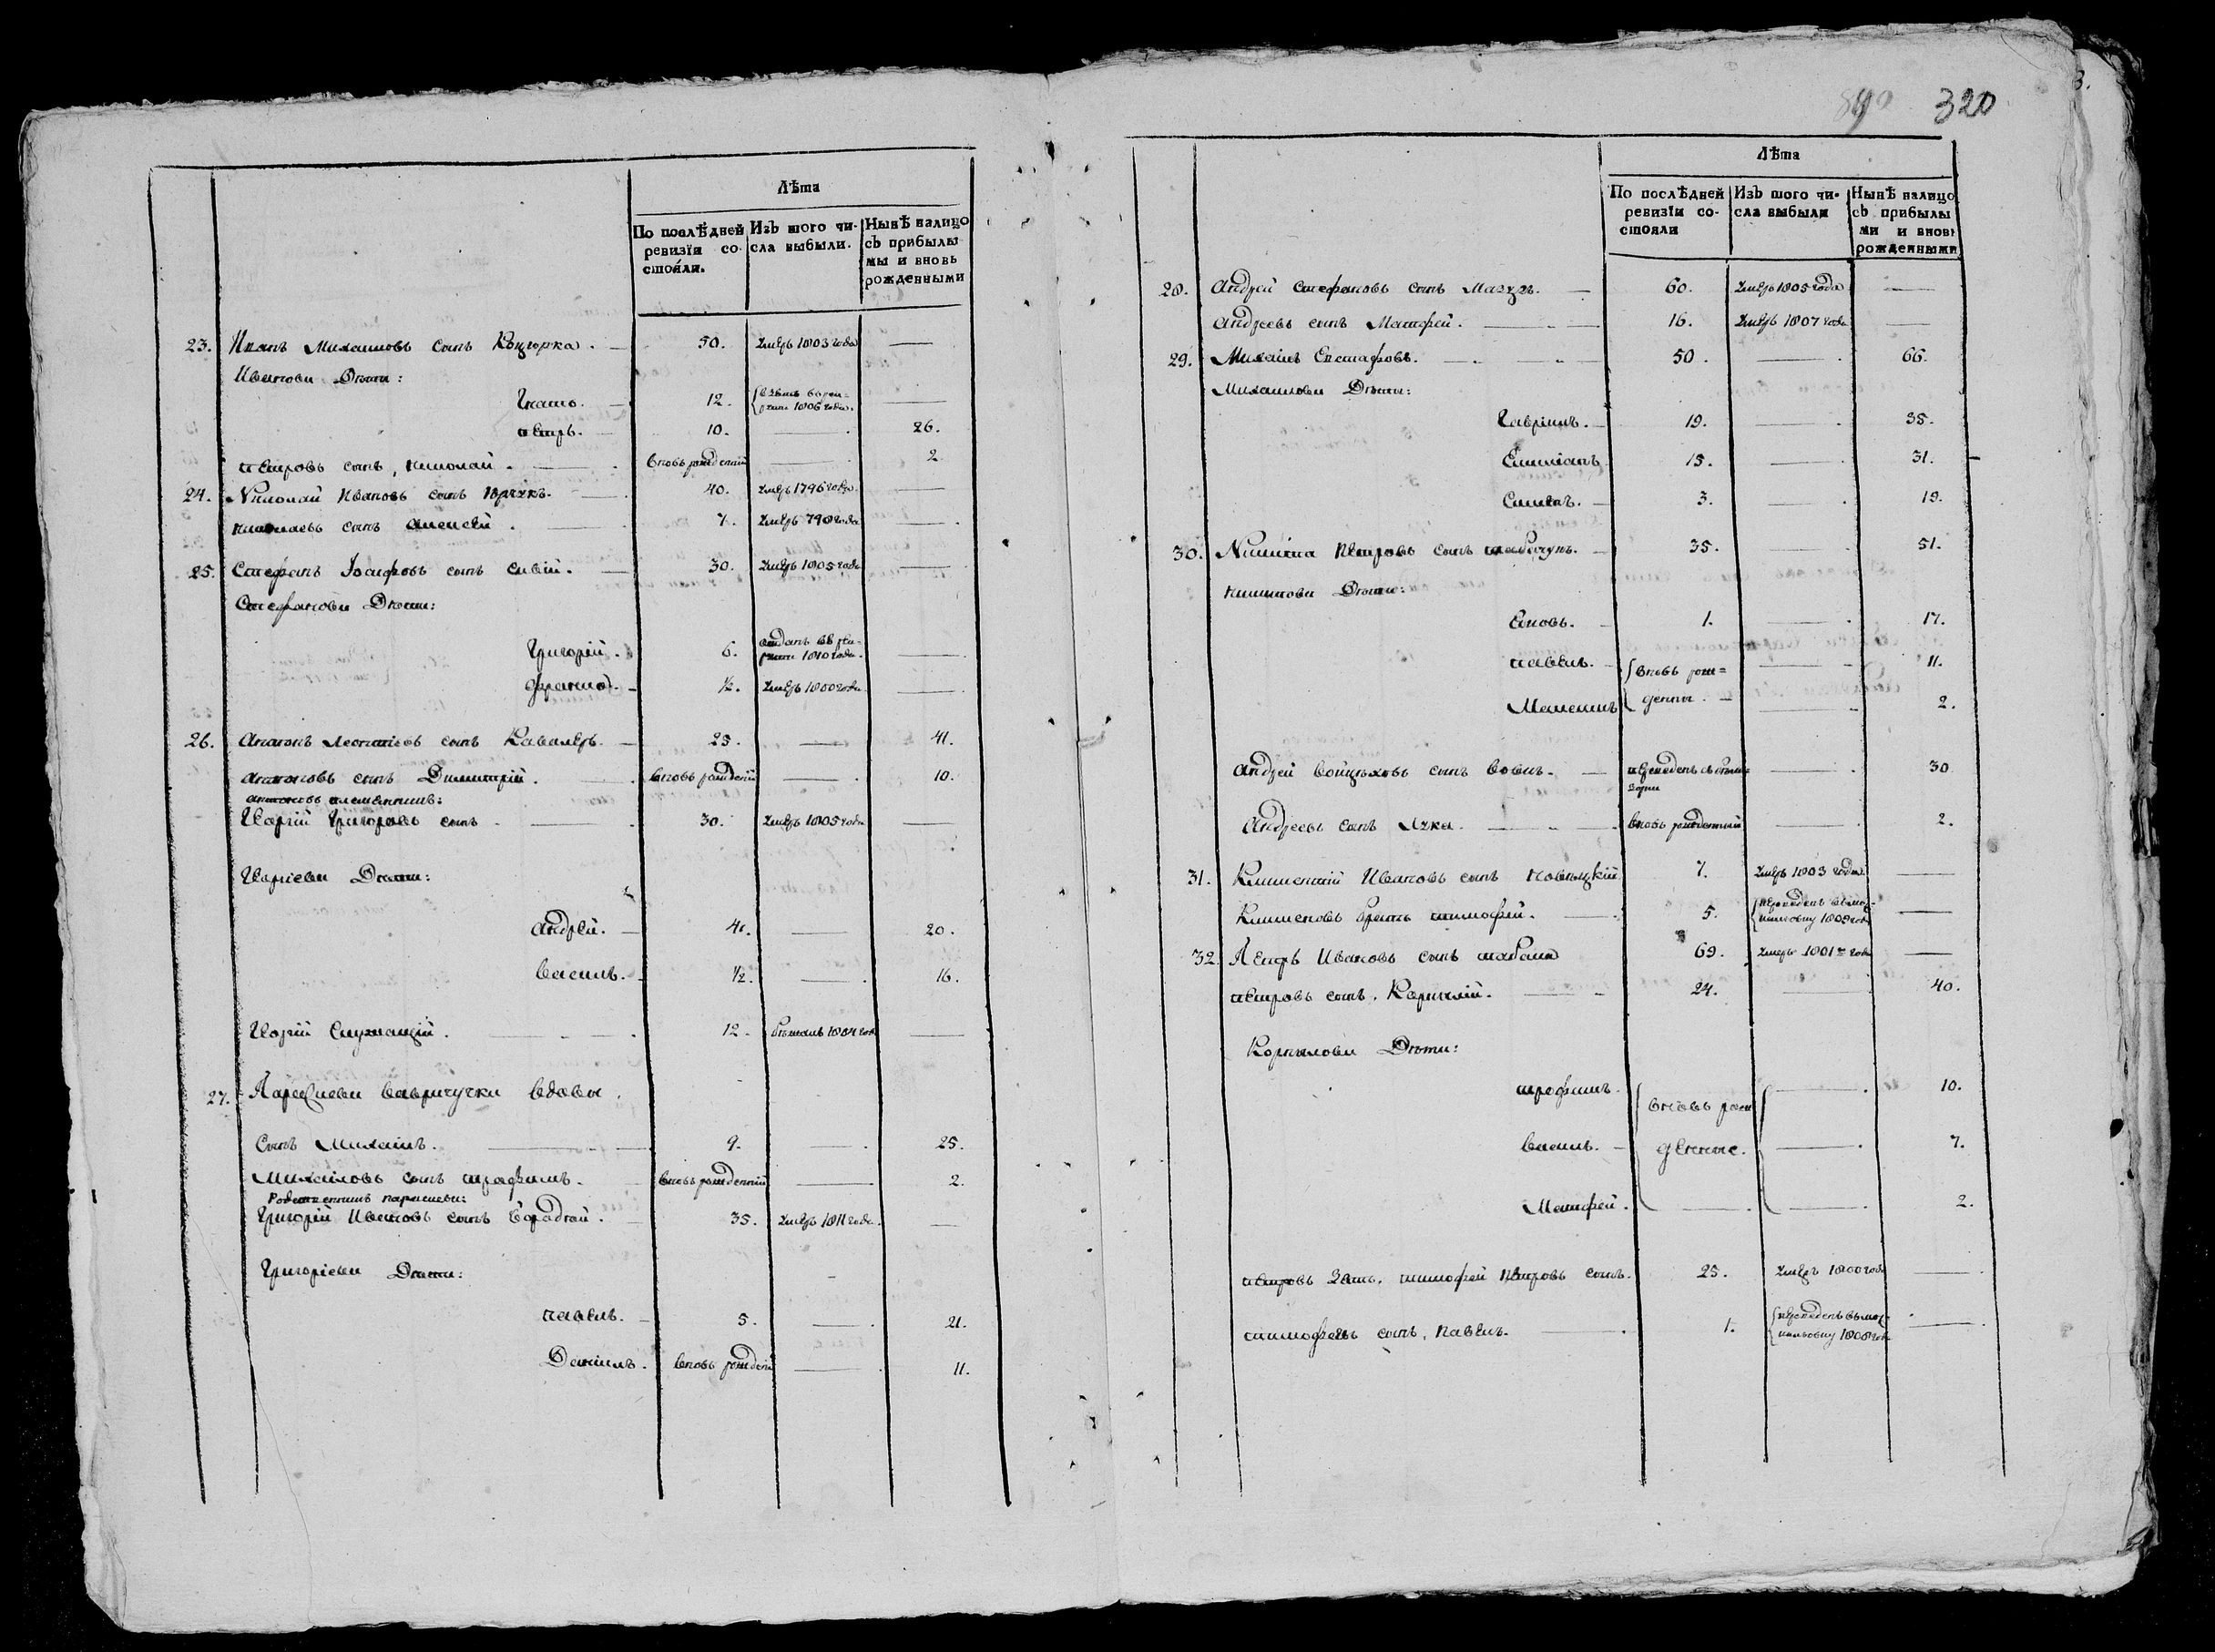 Лѣта
По послѣдней ревизїи состояли.
Изъ того числа выбыли.
Нынѣ налицо съ прибылымы и вновь рожденными
23. Иванъ Михаиловъ сынъ Коцюрка. 50. Умеръ 1803 года —
Иванови Дѣти:
Игнатъ. 12. взятъ врекруты 1806 года. —
Петръ. 10. — 26.
Петровъ сынъ, Николай. вновь рожденый — 2
24. Николай Ивановъ сынъ 40. умеръ 1796 года —
николаевъ сынъ алексѣй. 7. умеръ 798 года —
25. Стефанъ Іосифовъ сынъ Сивій. 30. умеръ 1805 года —
Стефанови Дѣти:
Григорій. 6. отданъ въ рекруты 1810 года. —
½. умеръ 1800 года —
26. Антонъ Леонтіевъ сынъ Кавалеръ. 25. — 41.
антоновъ сынъ Димитрій. вновь рожденій — 10.
антоновъ племенникъ:
Георгій Григоровъ сынъ 30. умеръ 1805 года —
Георгіеви Дѣти:
андрей. 4. — 20.
василь. ½. — 16.
Георгій Служащій. 12. бѣжалъ 1804 года —
27. Параскіеви вавричучки вдовы.
Сынъ Михаилъ. 9. — 25.
Михаиловъ сынъ трафимъ. вновь рожденній — 2.
Родственникъ параскеви:
Григорій Ивановъ сынъ 35. умеръ 1811 года. —
Григоріеви Дѣти:
павелъ. 5. — 21.
Данилъ. вновь рожденъ — 11.
320
Лѣта
По послѣдней ревизїи состояли
Изъ того числа выбыли
Нынѣ налицо съ прибылыми и вновь рожденными
28. Андрей Стефановъ сынъ Мазуръ. 60. умеръ 1805 года —
андреевъ сынъ Матфей. 16. умеръ 1807 года —
29. Михаилъ Евстафовъ. 50. — 66.
Михаилови Дѣти:
Гавріилъ. 19. — 35.
Емиліанъ 15. — 31.
3. — 19.
30. Никита Петровъ сынъ 35. — 51.
никитови Дѣти:
Яковъ. 1. — 17.
павелъ. вновь рож= — 11.
денны. — 2.
андрей Войцѣховъ сынъ — 30
Андреевъ сынъ вновь рожденный — 2.
31. Климентій Ивановъ сынъ Новицкій 7. умеръ 1803 года —
Климентовъ братъ тимофей. 5. переведенъ 1809 года —
32. Петръ Ивановъ сынъ 69. умеръ 1801го года —
петровъ сынъ, Корнилій. 24. — 40.
Корнилови Дѣти:
трофимъ. вновь рож — 10.
василь. денные. — 7.
Матфей. — 2.
петровъ зять, тимофей Петровъ сынъ. 25. умеръ 1800 года —
тимофеевъ сынъ, Павелъ. 1. переведенъ 1808 года —